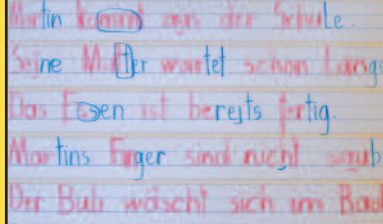 Martin kommt aus der Schule.
Seine Mutter wartet schon lange
Das Essen ist bereits fertig.
Martins Finger sind nicht saub
Der Bub wäscht sich im Bad